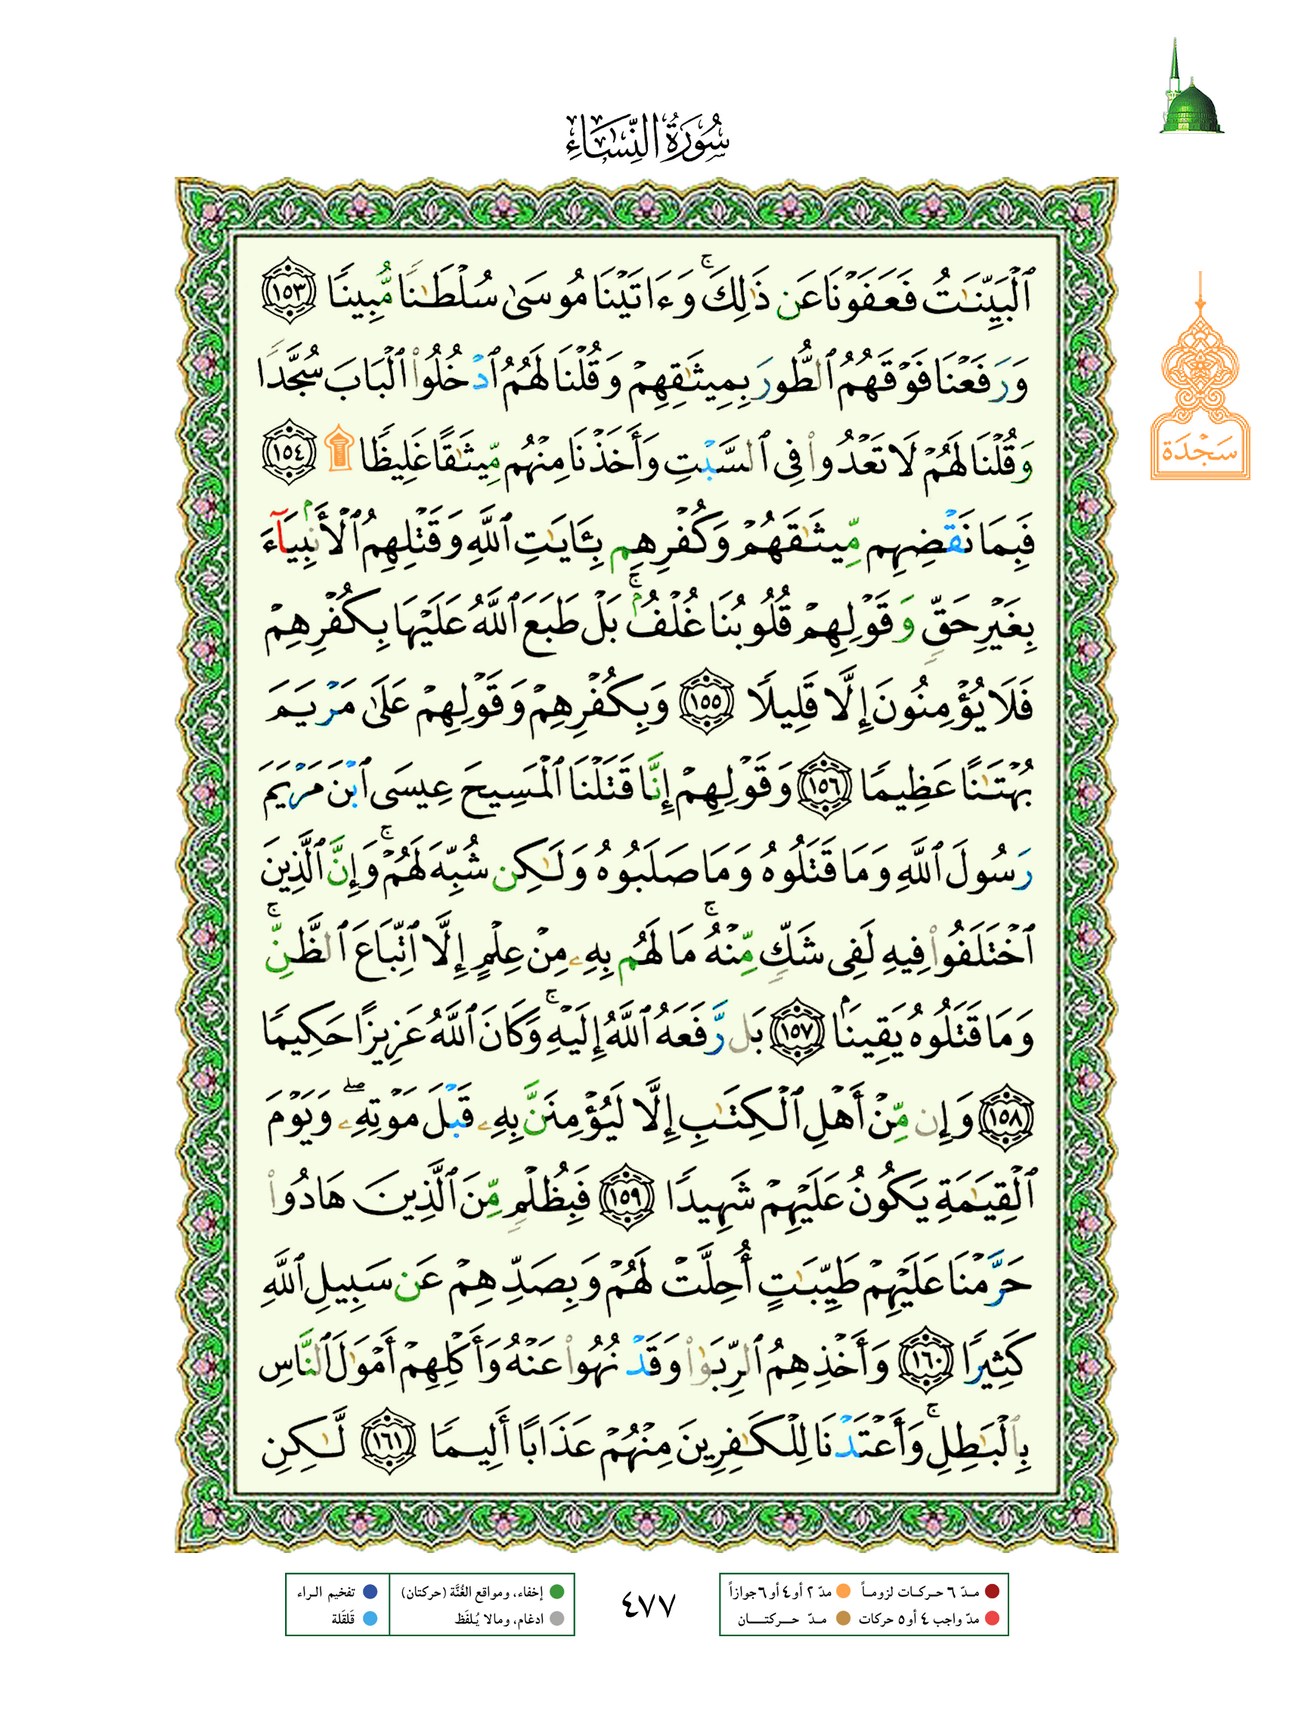 سُورَةُ النِّسَاءِ
ٱلْبَيِّنَـٰتُ فَعَفَوْنَا عَن ذَٰلِكَ ۚ وَءَاتَيْنَا مُوسَىٰ سُلْطَـٰنًا مُّبِينًا ١٥٣
وَرَفَعْنَا فَوْقَهُمُ ٱلطُّورَ بِمِيثَـٰقِهِمْ وَقُلْنَا لَهُمُ ٱدْخُلُوا۟ ٱلْبَابَ سُجَّدًا
وَقُلْنَا لَهُمْ لَا تَعْدُوا۟ فِى ٱلسَّبْتِ وَأَخَذْنَا مِنْهُم مِّيثَـٰقًا غَلِيظًا ۩ ١٥٤
سَجْدَة
فَبِمَا نَقْضِهِم مِّيثَـٰقَهُمْ وَكُفْرِهِم بِـَٔايَـٰتِ ٱللَّهِ وَقَتْلِهِمُ ٱلْأَنۢبِيَآءَ
بِغَيْرِ حَقٍّ وَقَوْلِهِمْ قُلُوبُنَا غُلْفٌۢ ۚ بَلْ طَبَعَ ٱللَّهُ عَلَيْهَا بِكُفْرِهِمْ
فَلَا يُؤْمِنُونَ إِلَّا قَلِيلًا ١٥٥ وَبِكُفْرِهِمْ وَقَوْلِهِمْ عَلَىٰ مَرْيَمَ
بُهْتَـٰنًا عَظِيمًا ١٥٦ وَقَوْلِهِمْ إِنَّا قَتَلْنَا ٱلْمَسِيحَ عِيسَى ٱبْنَ مَرْيَمَ
رَسُولَ ٱللَّهِ وَمَا قَتَلُوهُ وَمَا صَلَبُوهُ وَلَـٰكِن شُبِّهَ لَهُمْ ۚ وَإِنَّ ٱلَّذِينَ
ٱخْتَلَفُوا۟ فِيهِ لَفِى شَكٍّ مِّنْهُ ۚ مَا لَهُم بِهِۦ مِنْ عِلْمٍ إِلَّا ٱتِّبَاعَ ٱلظَّنِّ ۚ
وَمَا قَتَلُوهُ يَقِينًۢا ١٥٧ بَل رَّفَعَهُ ٱللَّهُ إِلَيْهِ ۚ وَكَانَ ٱللَّهُ عَزِيزًا حَكِيمًا
١٥٨ وَإِن مِّنْ أَهْلِ ٱلْكِتَـٰبِ إِلَّا لَيُؤْمِنَنَّ بِهِۦ قَبْلَ مَوْتِهِۦ ۖ وَيَوْمَ
ٱلْقِيَـٰمَةِ يَكُونُ عَلَيْهِمْ شَهِيدًا ١٥٩ فَبِظُلْمٍ مِّنَ ٱلَّذِينَ هَادُوا۟
حَرَّمْنَا عَلَيْهِمْ طَيِّبَـٰتٍ أُحِلَّتْ لَهُمْ وَبِصَدِّهِمْ عَن سَبِيلِ ٱللَّهِ
كَثِيرًا ١٦٠ وَأَخْذِهِمُ ٱلرِّبَوٰا۟ وَقَدْ نُهُوا۟ عَنْهُ وَأَكْلِهِمْ أَمْوَٰلَ ٱلنَّاسِ
بِٱلْبَـٰطِلِ ۚ وَأَعْتَدْنَا لِلْكَـٰفِرِينَ مِنْهُمْ عَذَابًا أَلِيمًا ١٦١ لَّـٰكِنِ
مـدّ ٦ حـركـات لزومـاً مدّ ٢ أو٤ أو ٦ جوازاً
مدّ واجب ٤ أو٥ حركات مـدّ حـــركتـــــان
٤٧٧
إخفاء، ومواقع الغُنَّة (حركتان) تفخيم الـراء
ادغام، ومالا يُـلفَظ قَلقَلة